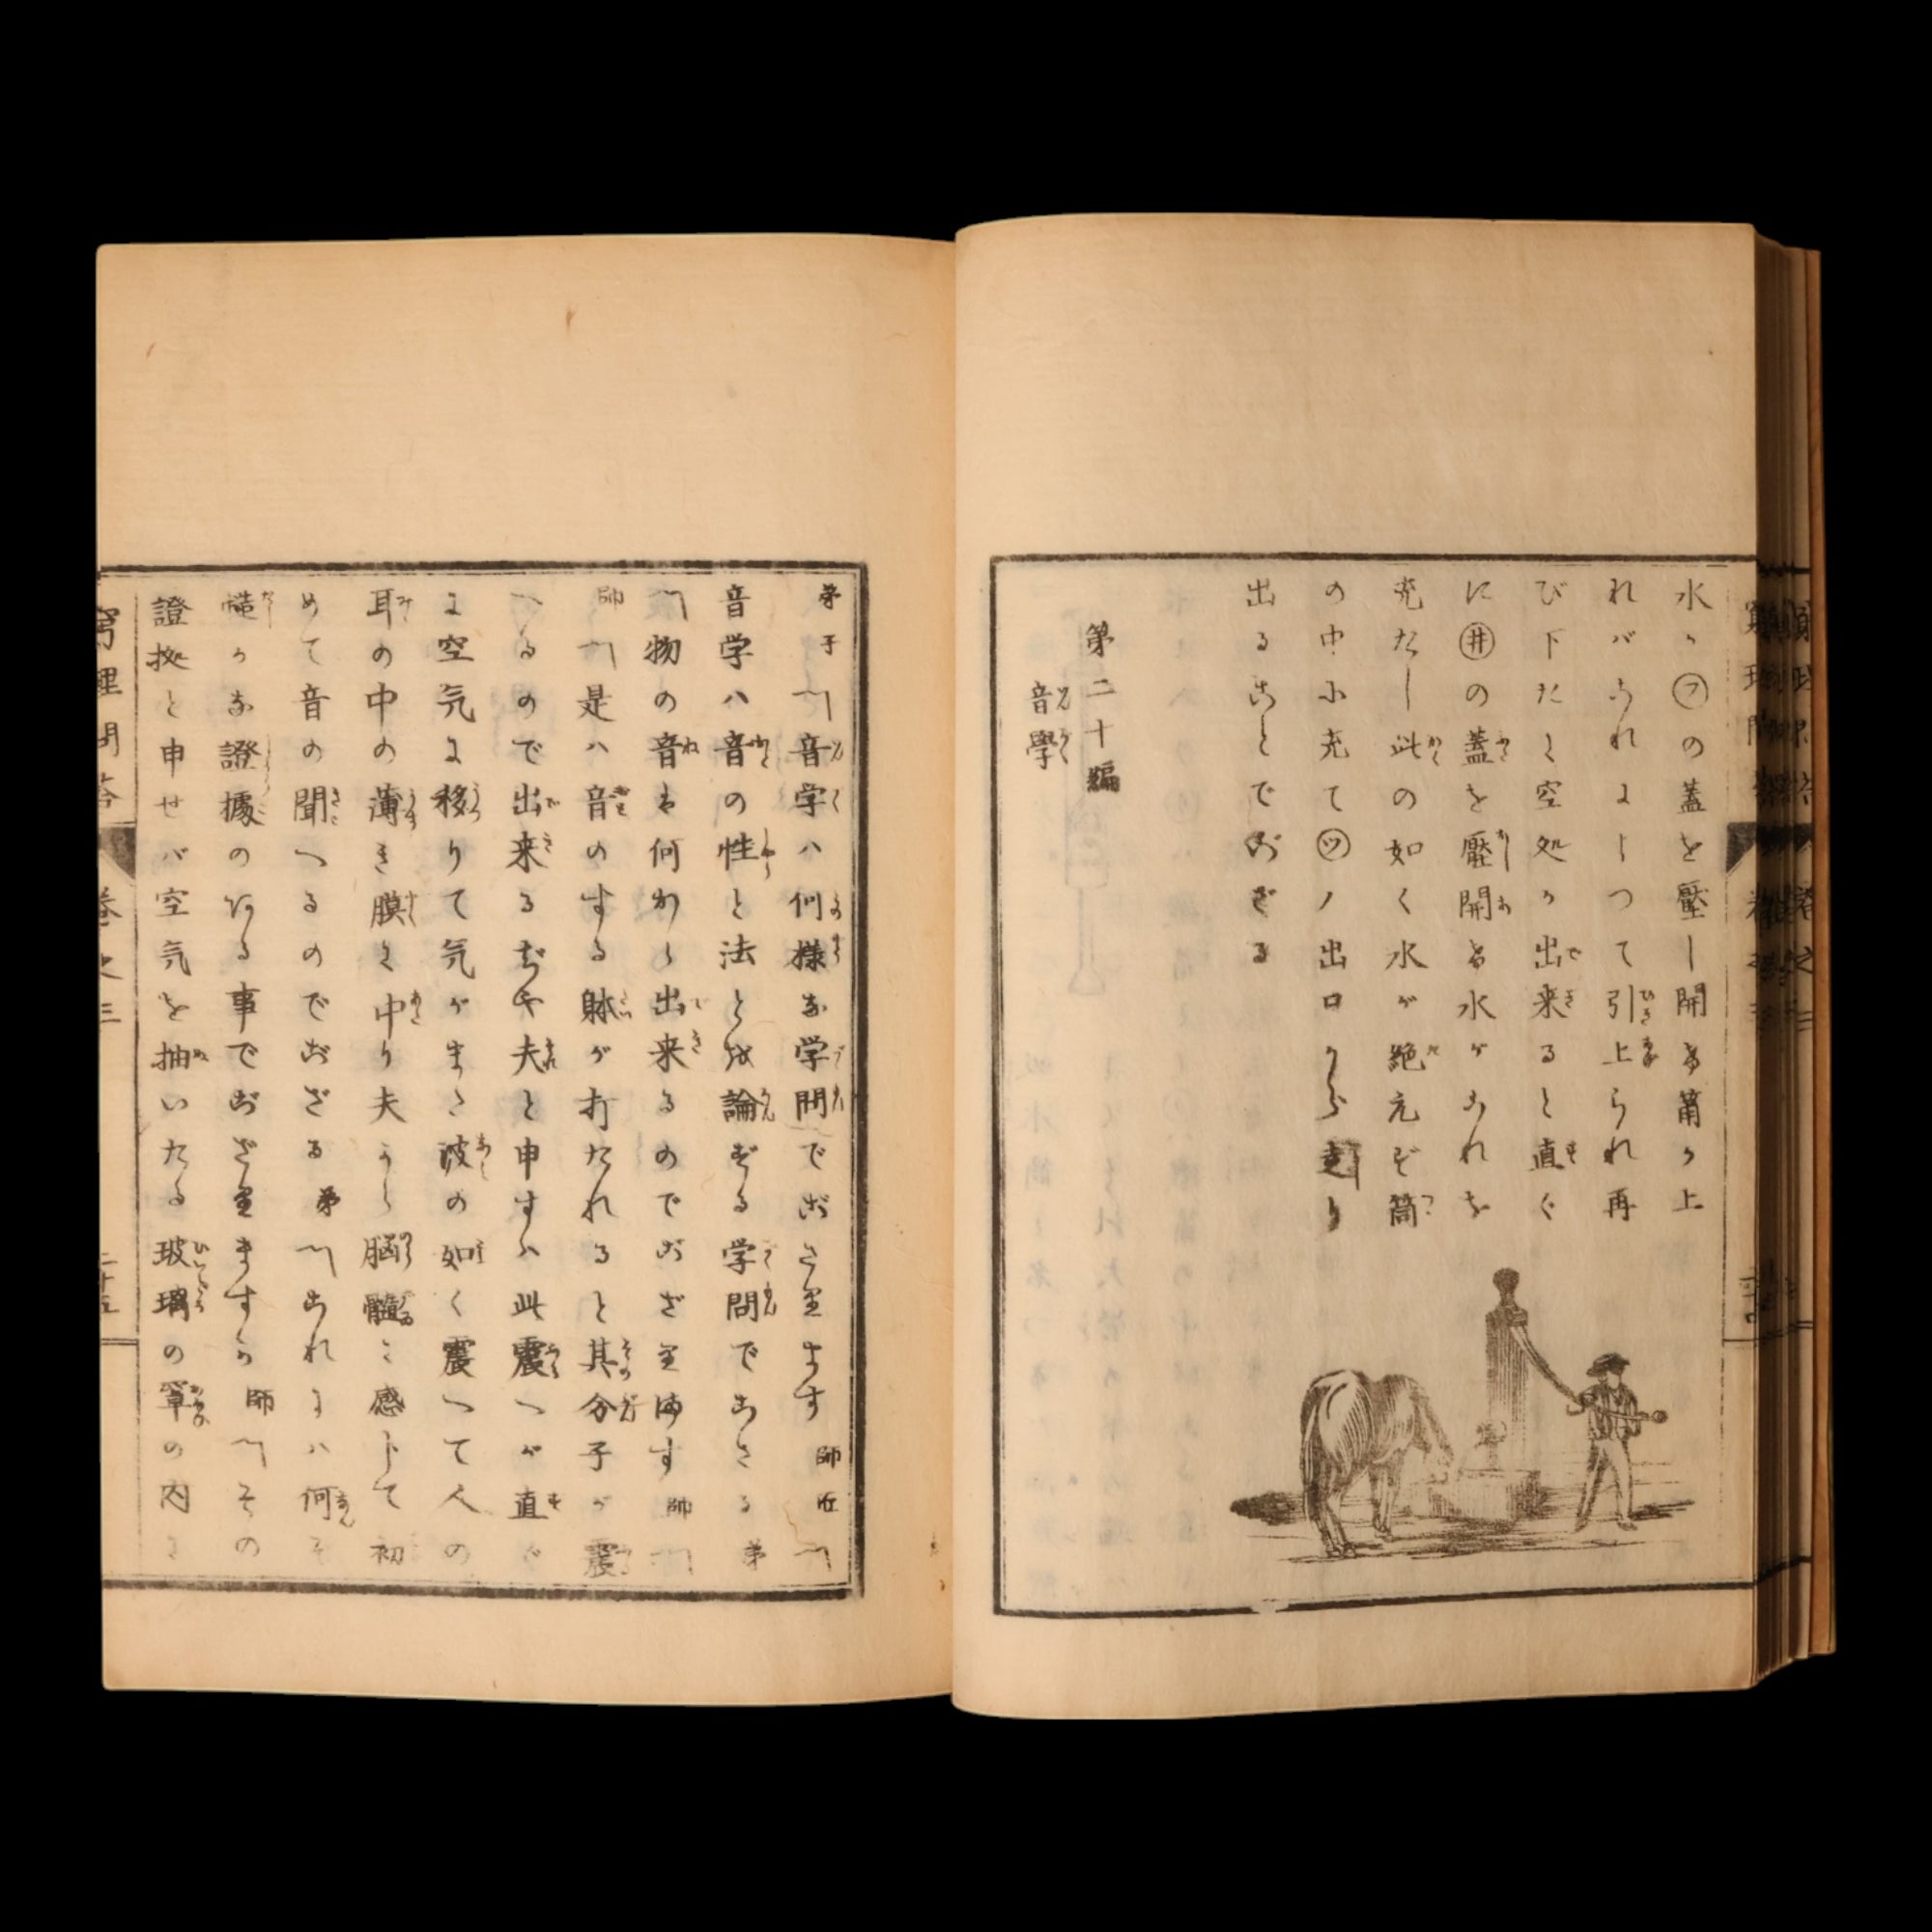 水ハ㋫の蓋を壓し開き筩の上
ればこれによつて引上られ再
び下たに空処が出来ると直ぐ
に㊉の蓋を壓開き水がこれを
充たし此の如く水が絶えず筒
の中に充て㋡ノ出口から走り
出ることでござる
第二十編
音學
弟子「音学ハ何様な学問でござります 師匠「
音学ハ音の性と法とを論ずる学問でござる 弟
「物の音は何から出来るのでござります 師「
師「是ハ音のする躰が打たれると其分子が震
へるので出来るぢや夫と申すハ此震へが直ぐ
に空気に移りて気がまた波の如く震へて人の
耳の中の薄き膜に中り夫から脳髄に感じて初
めて音の聞へるのでござる 弟「これにハ何ぞ
慥かな證據のある事でござりますか 師「その
證拠と申せバ空気を抽いたる玻璃の罩の内に
窮理問答 巻之三 二十五